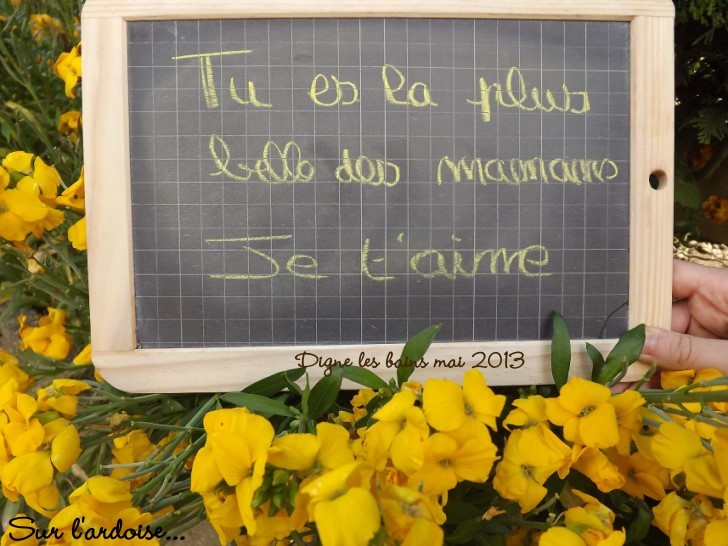 Tu es la plus
belle des mamans
Je t'aime
Digne les bains mai 2013
Sur l'ardoise...